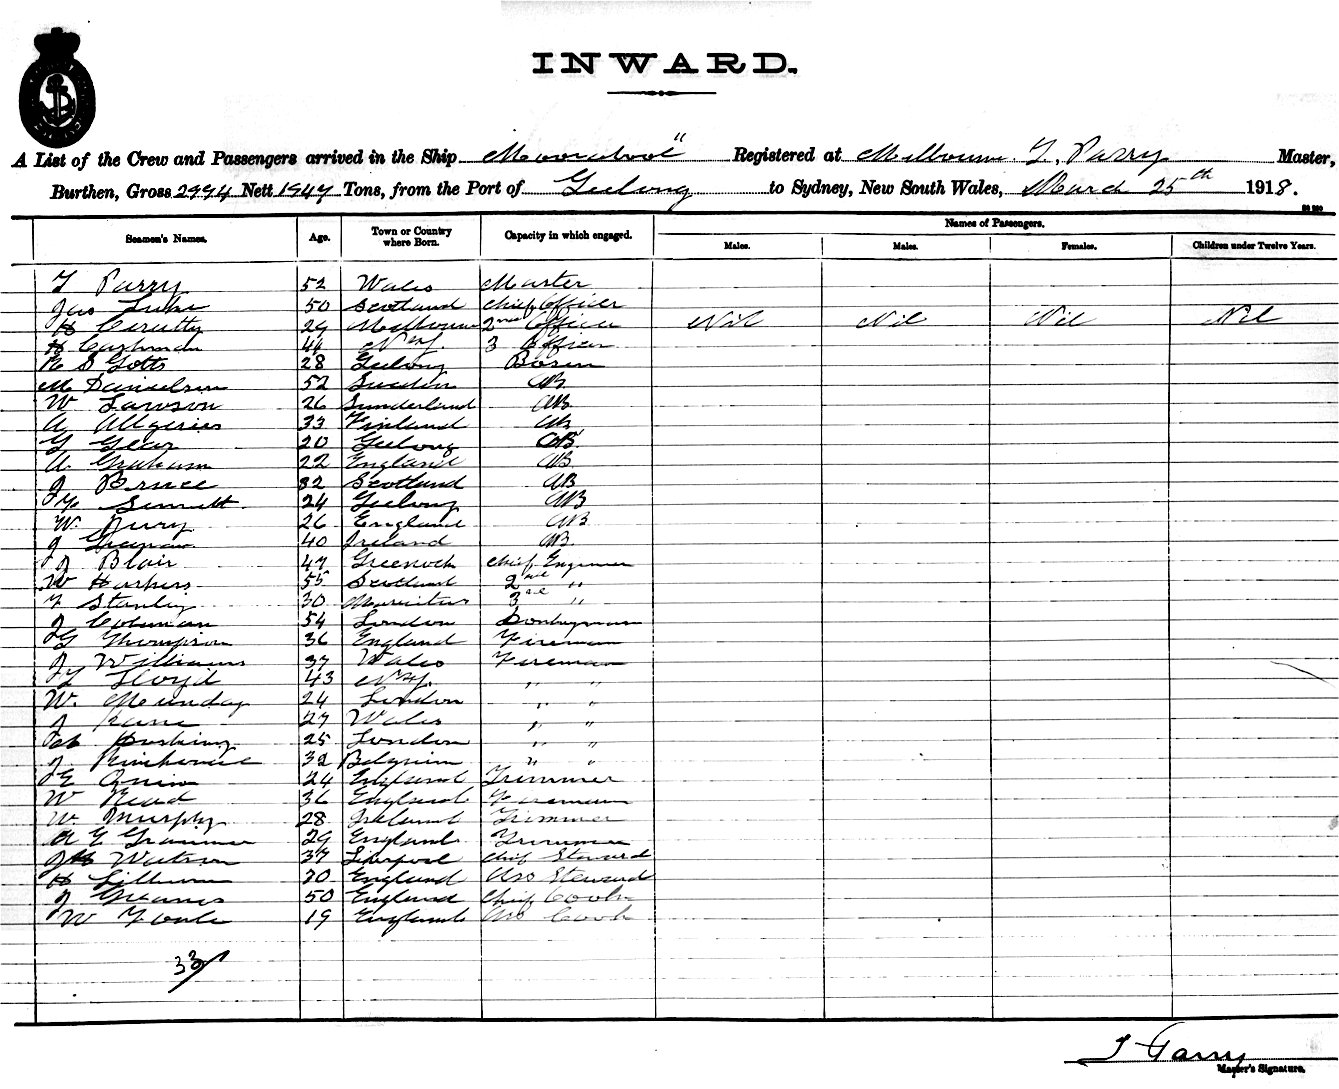 INWARD.
A List of the Crew and Passengers arrived in the Ship Moorabool" Registered at Melbourne T. Parry Master,
Burthen, Gross 2994 Nett 1947 Tons, from the Port of Geelong to Sydney, New South Wales, March 25th 1918.
Seamen's Names. Age. Town or Country where Born. Capacity in which engaged. Names of Passengers.
Males. Males. Females. Children under Twelve Years.
T Parry 52 Wales Master
Jas Luke 50 Scotland Chief Officer
H Cerutty 29 Melbourne 2nd Officer Nil Nil Nil Nil
H Cashman 44 3 Officer
R S Gotts 28 Geelong Bosun
M Danielsen 52 Sweden AB
W Lawson 26 Sunderland AB
A 33 Finland AB
G Gear 20 Geelong AB
A. Graham 22 England AB
J Bruce 32 Scotland AB
Sennett 24 Geelong AB
W. 26 England AB
J 40 Ireland AB
J Blair 47 Greenock Chief Engineer
W 55 Scotland 2nd "
T Stanley 30 Mauritius 3rd "
J Colman 54 London Donkeyman
G Thompson 36 England Fireman
J Williams 37 Wales Fireman
Lloyd 43 " "
W. Munday 24 London " "
J 27 Wales " "
Hosking 25 London " "
J. 32 Belgium " "
E Quinn 24 England Trimmer
W Read 36 England Fireman
W. Murphy 28 Ireland Trimmer
A E 29 England Trimmer
JH Watson 37 Liverpool Chief Steward
H 20 England Ass Steward
J Greaves 50 England Chief Cook
W 19 England Ass Cook
33
T Parry
Master's Signature.